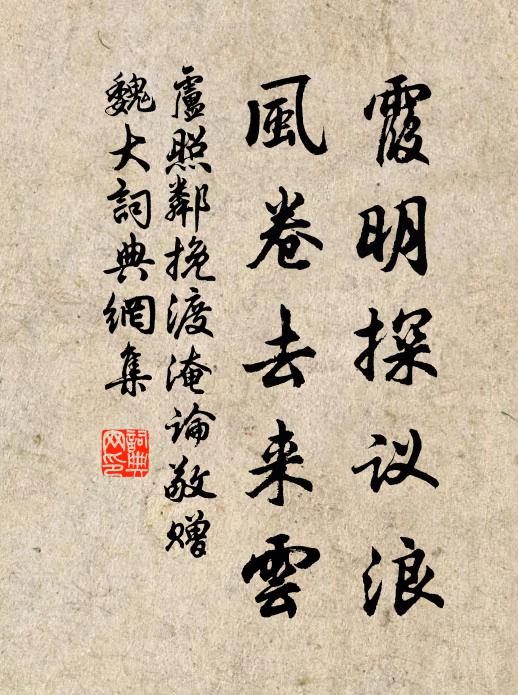 霞明探议浪
風卷去来雲
盧照鄰挽渡淹論敬贈
魏大詞典網集
詞典網印